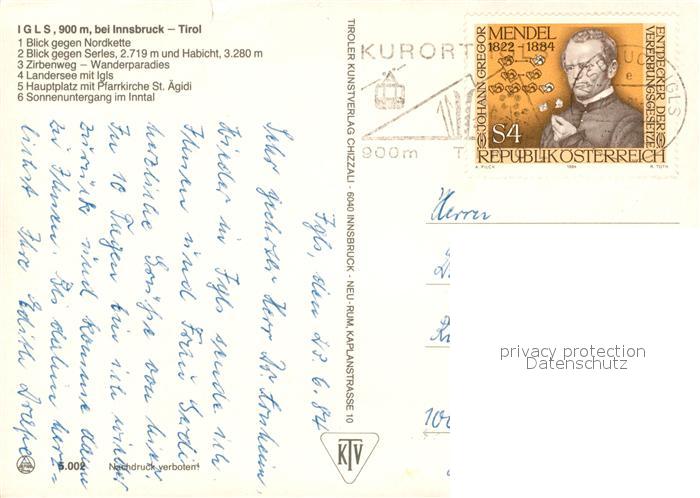 IGLS, 900 m, bei Innsbruck – Tirol
1 Blick gegen Nordkette
2 Blick gegen Serles, 2.719 m und Habicht, 3.280 m
3 Zirbenweg – Wanderparadies
4 Landersee mit Igls
5 Hauptplatz mit Pfarrkirche St. Ägidi
6 Sonnenuntergang im Inntal
Igls, den 28.6.84
Sehr geehrter Herr Dr.
Wieder in Igls sende ich
Ihnen und Frau Gerdi
herzliche Grüße von hier.
In 10 Tagen bin ich wieder
zurück und komme dann
zu Ihnen. Bis dahin herz=
lichst Ihre Edith
5.002
Nachdruck verboten!
TIROLER KUNSTVERLAG CHIZZALI · 6040 INNSBRUCK - NEU-RUM, KAPLANSTRASSE 10
KTV
KURORT
900m T
IGLS
JOHANN GREGOR
MENDEL
1822-1884
ENTDECKER DER
VERERBUNGSGESETZE
S4
REPUBLIK ÖSTERREICH
A. PILCH
1984
R. TOTH
Herrn
privacy protection
Datenschutz